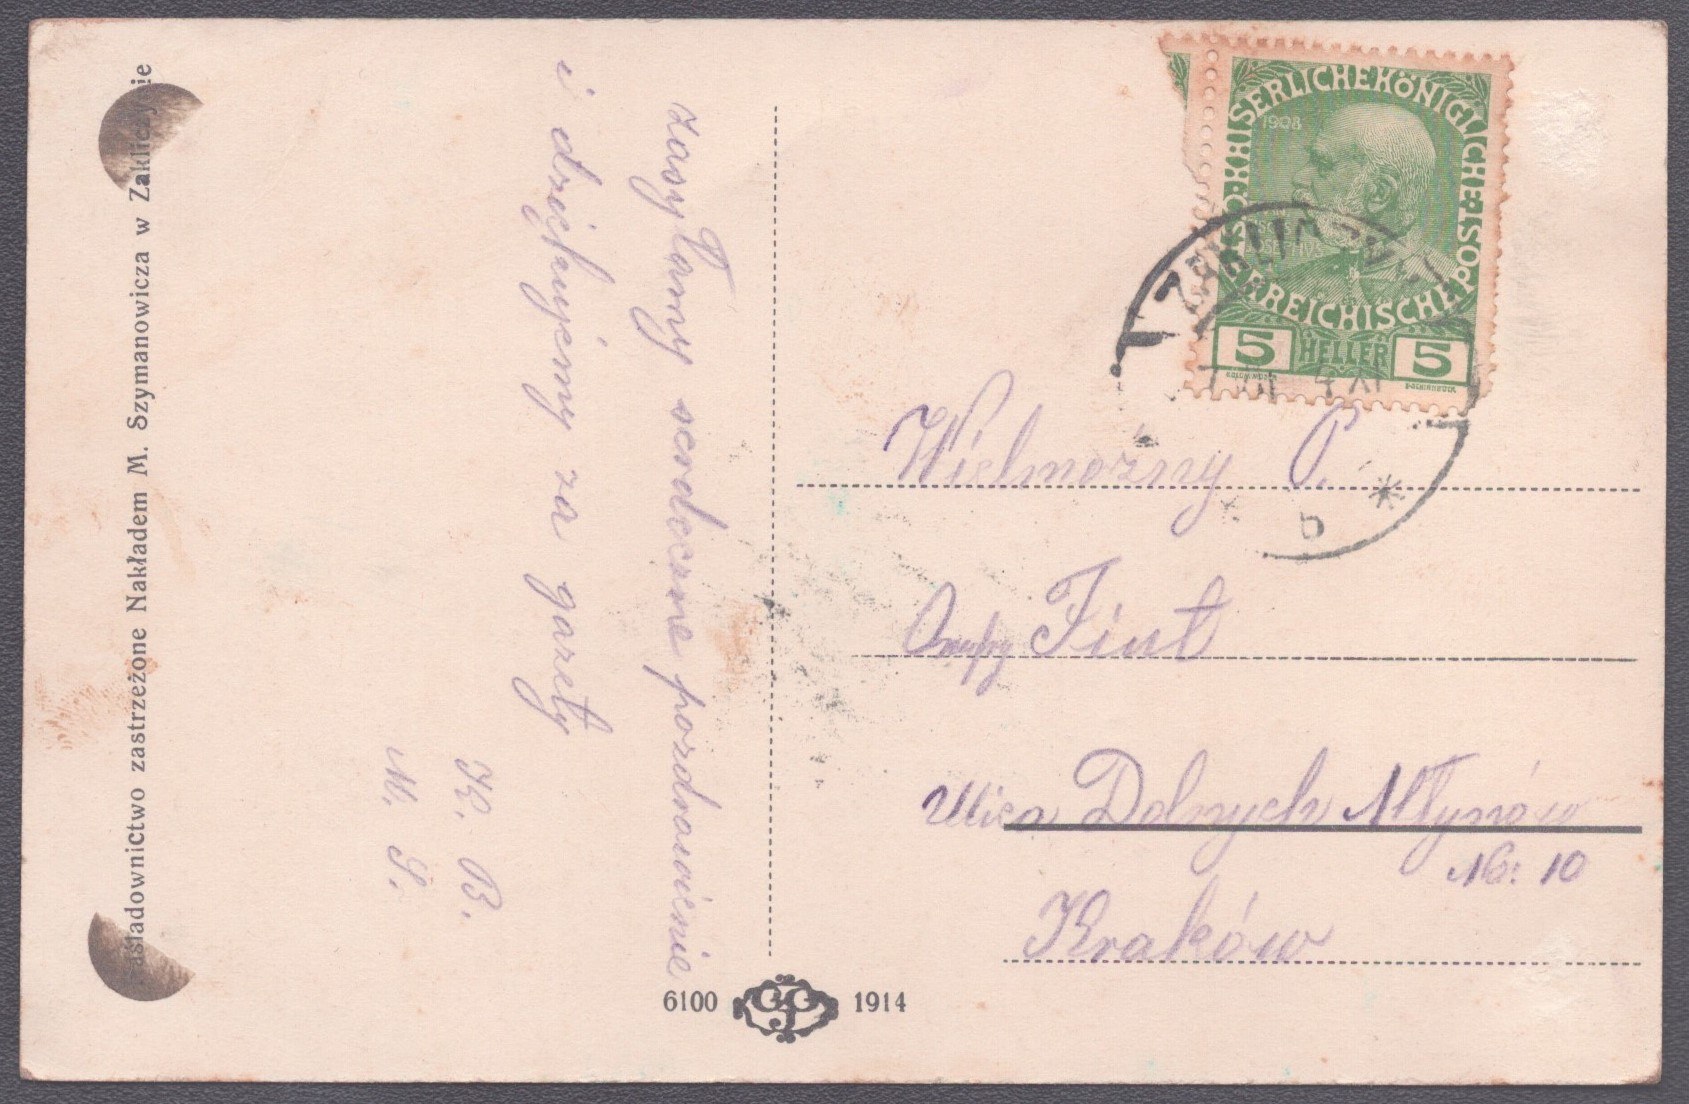 aśladownictwo zastrzeżone Nakładem M. Szymanowicza w Zakliczynie
zasyłamy serdeczne pozdrawienie
i dziękujemy za gazety
K. B.
M. S.
KAISERLICHE KÖNIGLICHE ÖSTERREICHISCHE POST
1908
5 HELLER 5
ZAKLICZYN
XI
b *
Wielmożny P.
Fiut
Ulica Dolnych Młynów
No: 10
Kraków
6100 1914